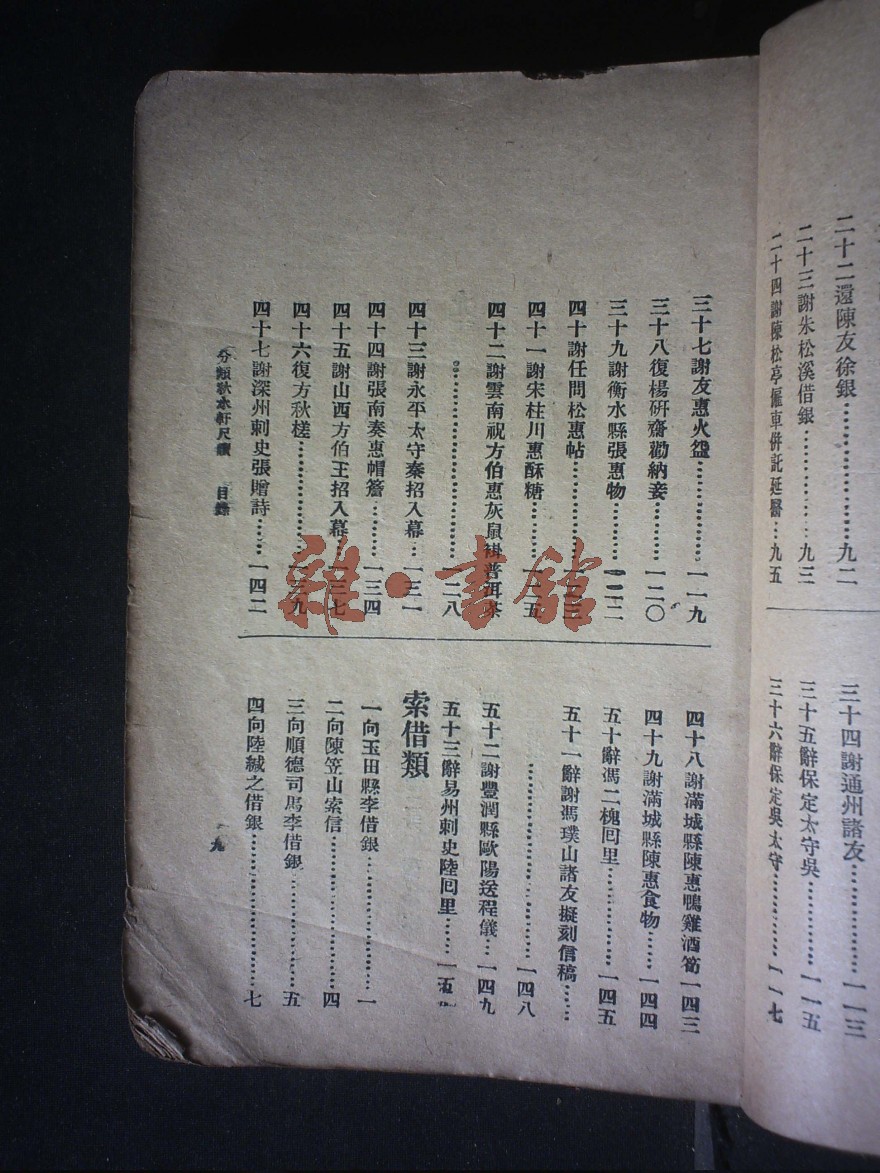 二十二還陳友徐銀……九二
二十三謝朱松溪借銀……九三
二十四謝陳松亭僱車併託延醫…九五
三十四謝通州諸友……一一三
三十五辭保定太守吳……一一五
三十六辭保定吳太守……一一七
三十七謝友惠火盌……一一九
三十八復楊研齋勸納妾……一二〇
三十九謝衡水縣張惠物……一二二
四十謝任問松惠帖……一二三
四十一謝宋柱川惠酥糖……一二五
四十二謝雲南祝方伯惠灰鼠褂普洱茶
……一二八
四十三謝永平太守秦招入幕…一三一
四十四謝張南奏惠帽簷……一三四
四十五謝山西方伯王招入幕…一三七
四十六復方秋槎……一三九
四十七謝深州刺史張贈詩……一四二
四十八謝滿城縣陳惠鴨雞酒筍一四三
四十九謝滿城縣陳惠食物……一四四
五十辭馮二槐囘里……一四五
五十一辭謝馮璞山諸友擬刻信稿……
……一四八
五十二謝豐潤縣歐陽送程儀…一四九
五十三辭易州刺史陸囘里……一五
索借類
一向玉田縣李借銀……一
二向陳笠山索信……四
三向順德司馬李借銀……五
四向陸緘之借銀……七
分類秋水軒尺牘 目錄
九
雜·書館